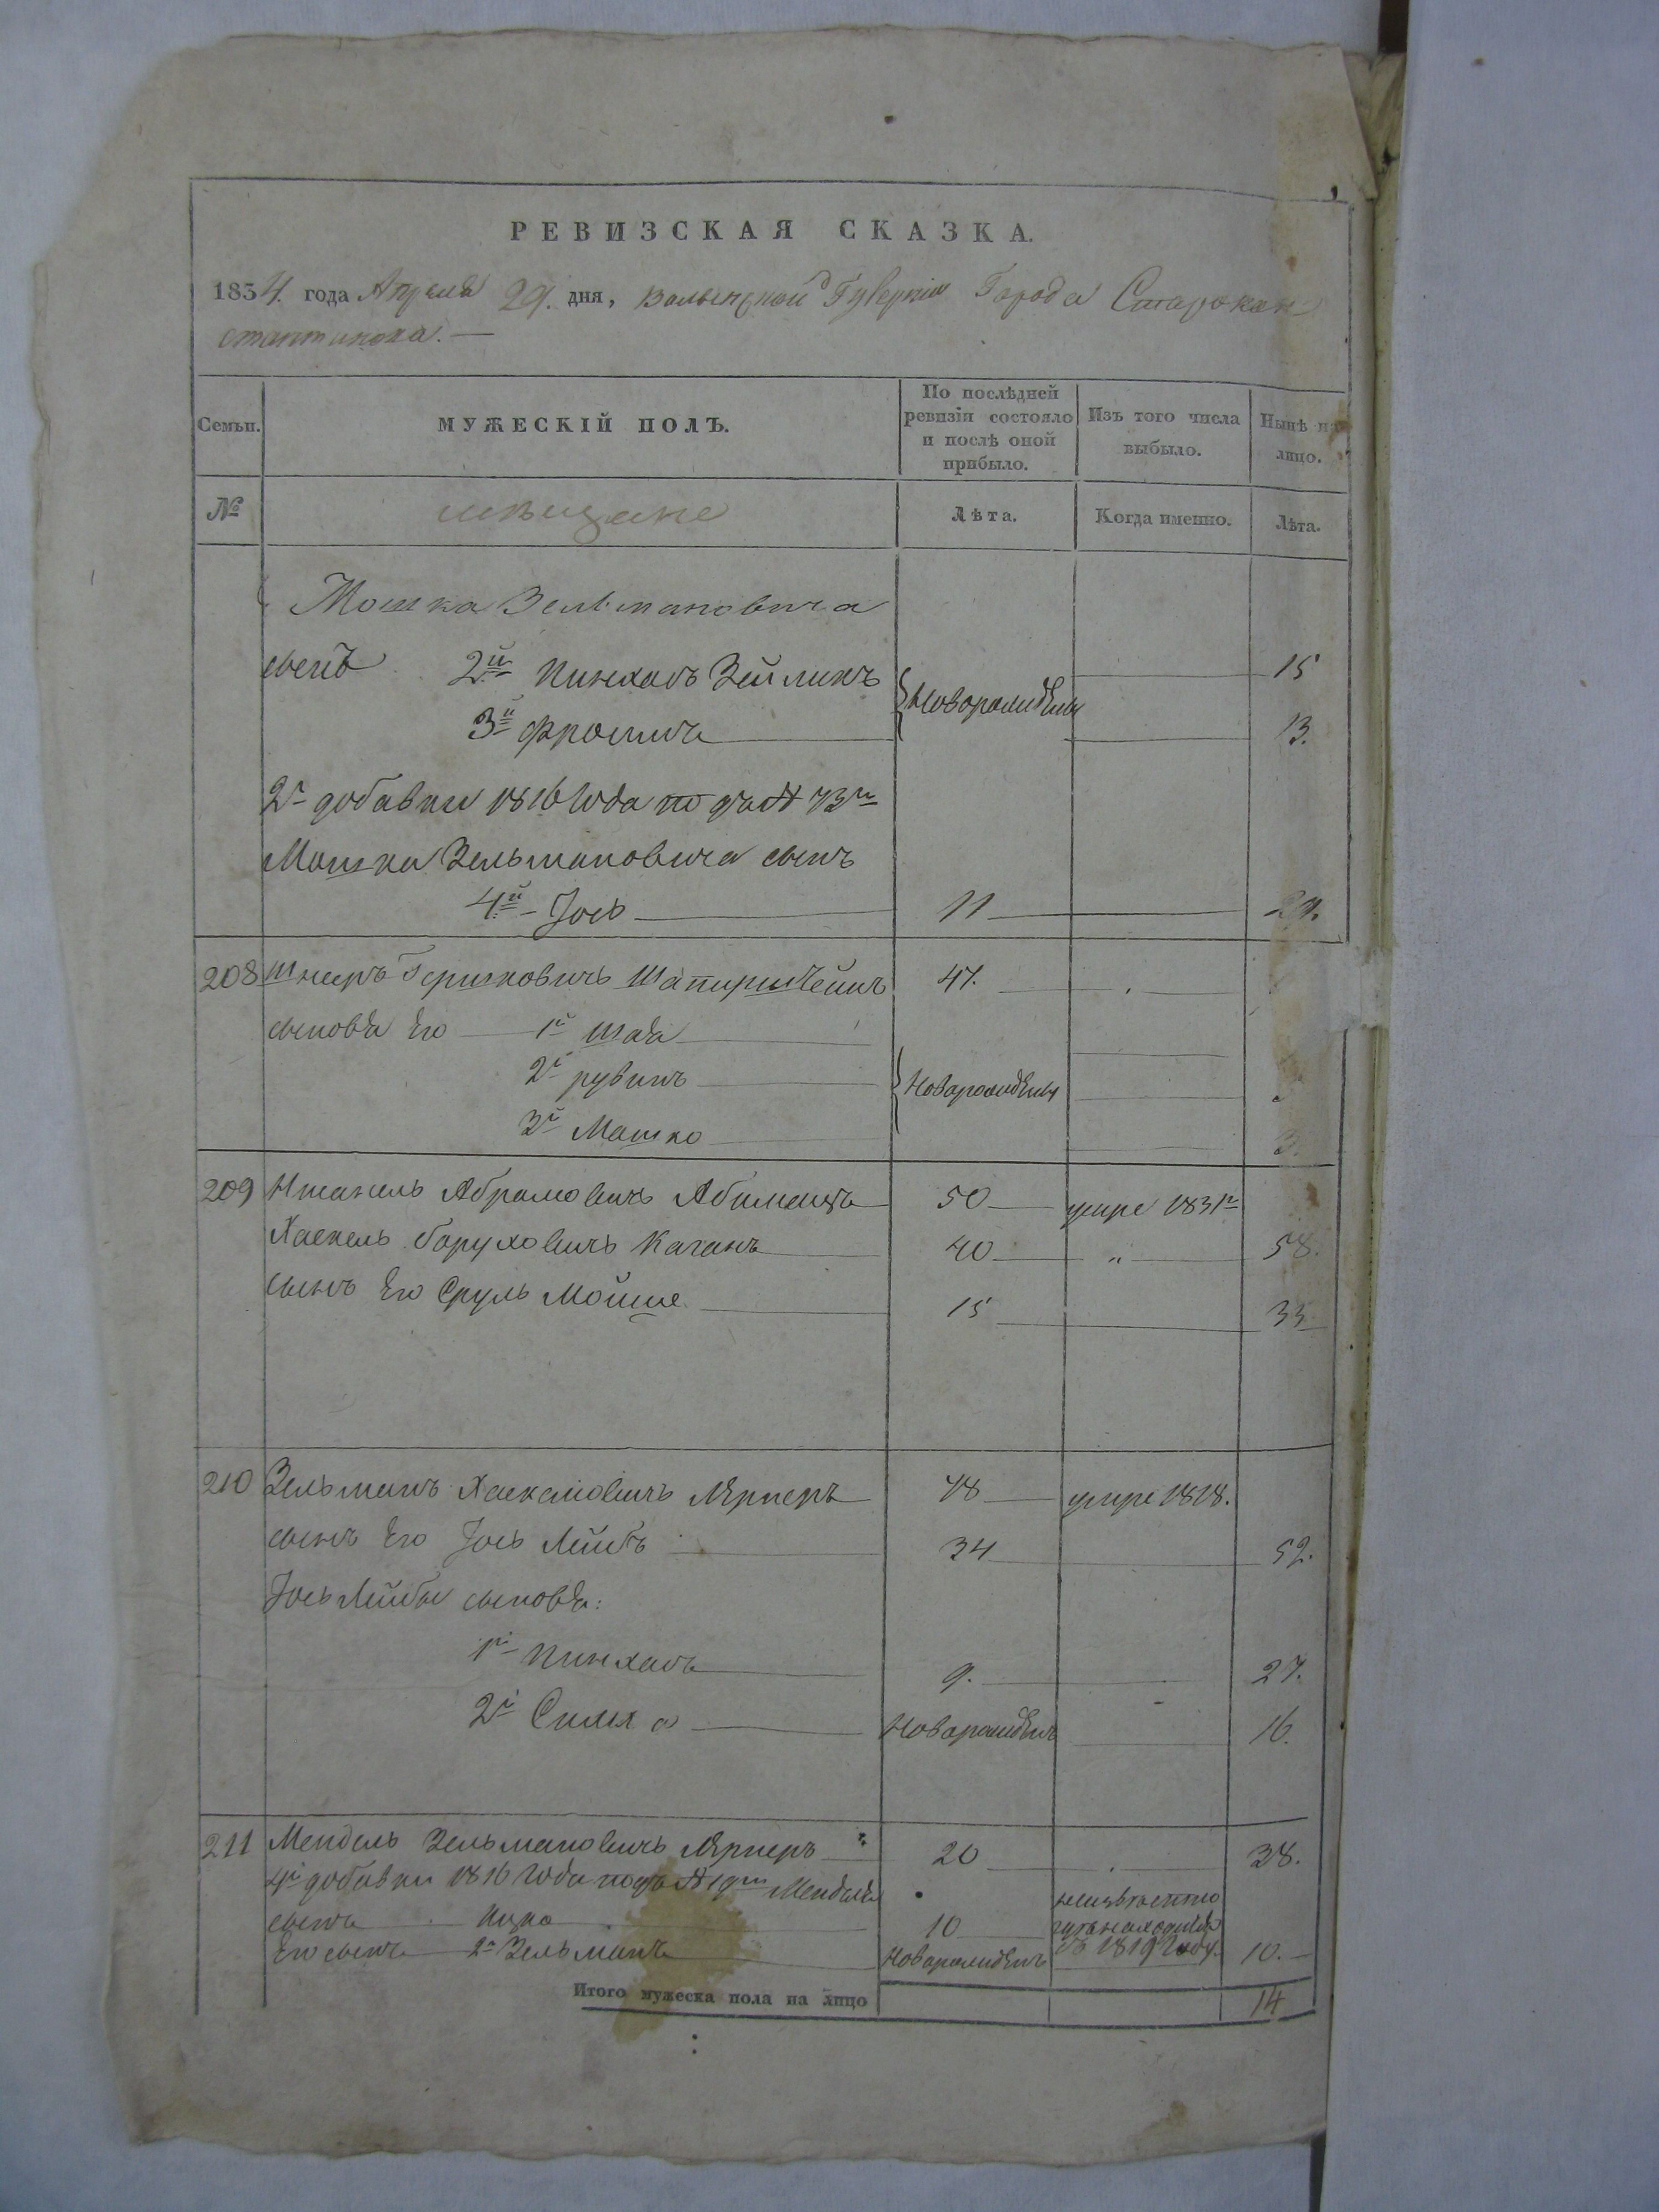 РЕВИЗСКАЯ СКАЗКА.
1834. года Апреля 29. дня, Волынской Губернiи Города Старокон
стантинова. —
Семьи.
МУЖЕСКІЙ ПОЛЪ.
По послѣдней ревизіи состояло и послѣ оной прибыло.
Изъ того числа выбыло.
Нынѣ на лицо.
№
мѣщане
Лѣта.
Когда именно.
Лѣта.
Мошка Зельмановича
сынъ 2й Пинхасъ Зейликъ 15
Новорожденны
3й Фроимъ 13.
2й добавки 1816 года подъ № 73м
Мошка Зельмановича сынъ
4й Іось 11 29.
208 Шнеръ Гершковичъ 47.
сыновья Его 1й
2й рувинъ Новорожденны
3й Мошко 3.
209 Абрамовичъ 50 умре 1831г
Хаскель Боруховичъ Каганъ 40 " 58.
сынъ Его Сруль Мойше 15 33
210 Зельманъ 48 умре 1818.
сынъ Его Іось Лейбъ 34 52.
Іось Лейбы сыновья:
1й Пинхасъ 9. 27.
2й Симха Новорожденъ 16.
211 Мендель Зельмановичъ 20 38.
4й добавки 1816 года подъ № 19м Менделя
сынъ Ицко 10 неизвѣстно
гдѣ находится
съ 1819 году.
Его сынъ 2й Зельманъ Новорожденъ 10.
Итого мужеска пола на лицо 14